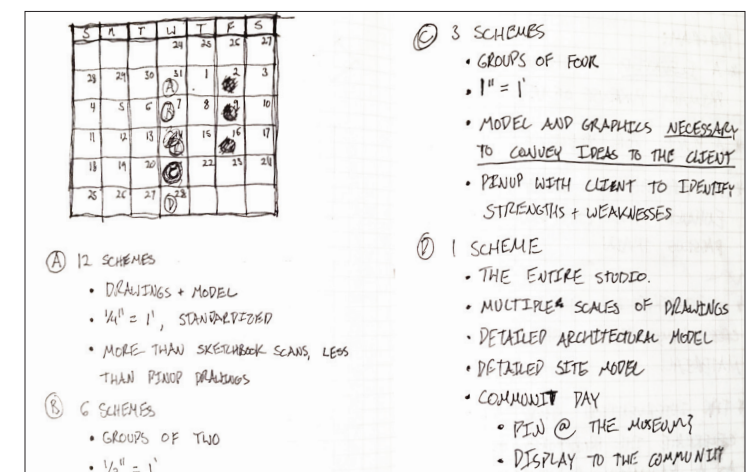 S M T W T F S
24 25 26 27
28 29 30 31 1 2 3
A
4 5 6 7 8 9 10
B
11 12 13 14 15 16 17
C
18 19 20 22 23 24
C
25 26 27 28
D
Ⓐ 12 SCHEMES
• DRAWINGS + MODEL
• 1/4" = 1', STANDARDIZED
• MORE THAN SKETCHBOOK SCANS, LESS
THAN PINUP DRAWINGS
Ⓑ 6 SCHEMES
• GROUPS OF TWO
• 1/2" = 1'
Ⓒ 3 SCHEMES
• GROUPS OF FOUR
• 1" = 1'
• MODEL AND GRAPHICS NECESSARY
TO CONVEY IDEAS TO THE CLIENT
• PINUP WITH CLIENT TO IDENTIFY
STRENGTHS + WEAKNESSES
Ⓓ 1 SCHEME
• THE ENTIRE STUDIO.
• MULTIPLE SCALES OF DRAWINGS
• DETAILED ARCHITECTURAL MODEL
• DETAILED SITE MODEL
• COMMUNIT DAY
• PIN @ THE MUSEUM?
• DISPLAY TO THE COMMUNITY